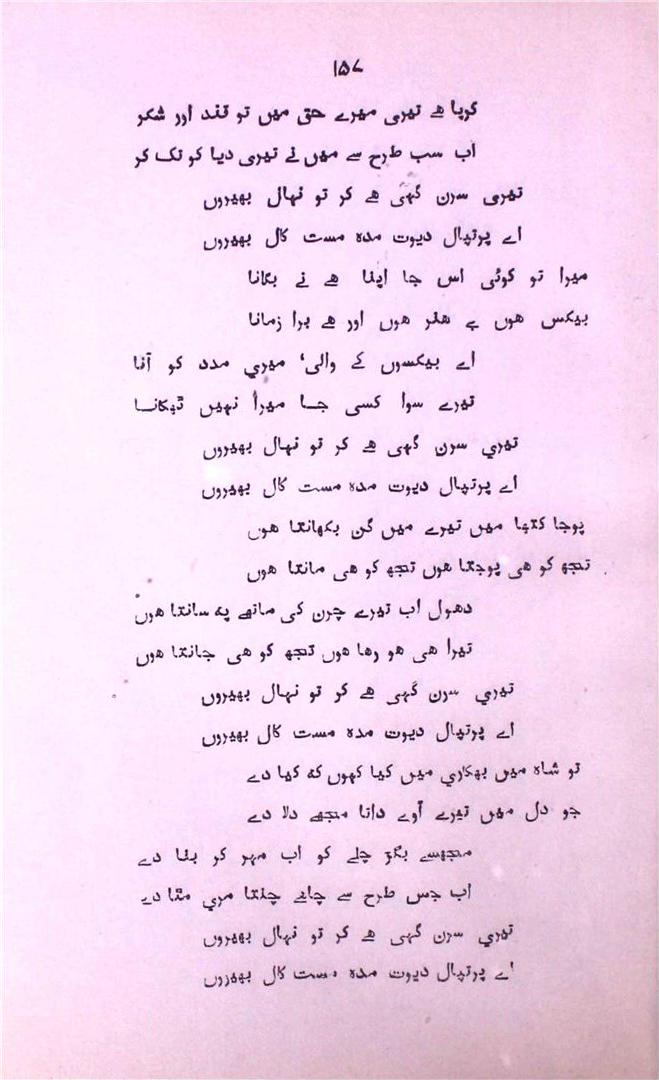 ۱۵۷
کرپا ھے تیری میرے حق میں تو قند اور شکر
اب سب طرح سے میں نے تیری دیا کو تک کر
تیری سرن گہی ھے کر تو نہال بھیروں
اے پرتپال دیوت مدہ مست کال بھیروں
میرا تو کوئی اس جا اپنا ھے نے بگانا
بیکس ھوں بے ھنر ھوں اور ھے برا زمانا
اے بیکسوں کے والی، میری مدد کو آنا
تیرے سوا کسی جا میرا نہیں ٹھکانا
تیری سرن گہی ھے کر تو نہال بھیروں
اے پرتپال دیوت مدہ مست کال بھیروں
پوجا کتھا میں تیرے میں گن بکھانتا ھوں
تجھ کو ھی پوجتا ھوں تجھ کو ھی مانتا ھوں
دھول اب تیرے چرن کی ماتھے پہ سانتا ھوں
تیرا ھی ھو رھا ھوں تجھ کو ھی جانتا ھوں
تیری سرن گہی ھے کر تو نہال بھیروں
اے پرتپال دیوت مدہ مست کال بھیروں
تو شاہ میں بھکاری میں کیا کہوں کہ کیا دے
جو دل میں تیرے آوے داتا مجھے دلا دے
مجھسے بگڑ چلے کو اب مہر کر بنا دے
اب جس طرح سے چاھے چنتا مری مٹا دے
تیری سرن گہی ھے کر تو نہال بھیروں
اے پرتپال دیوت مدہ مست کال بھیروں